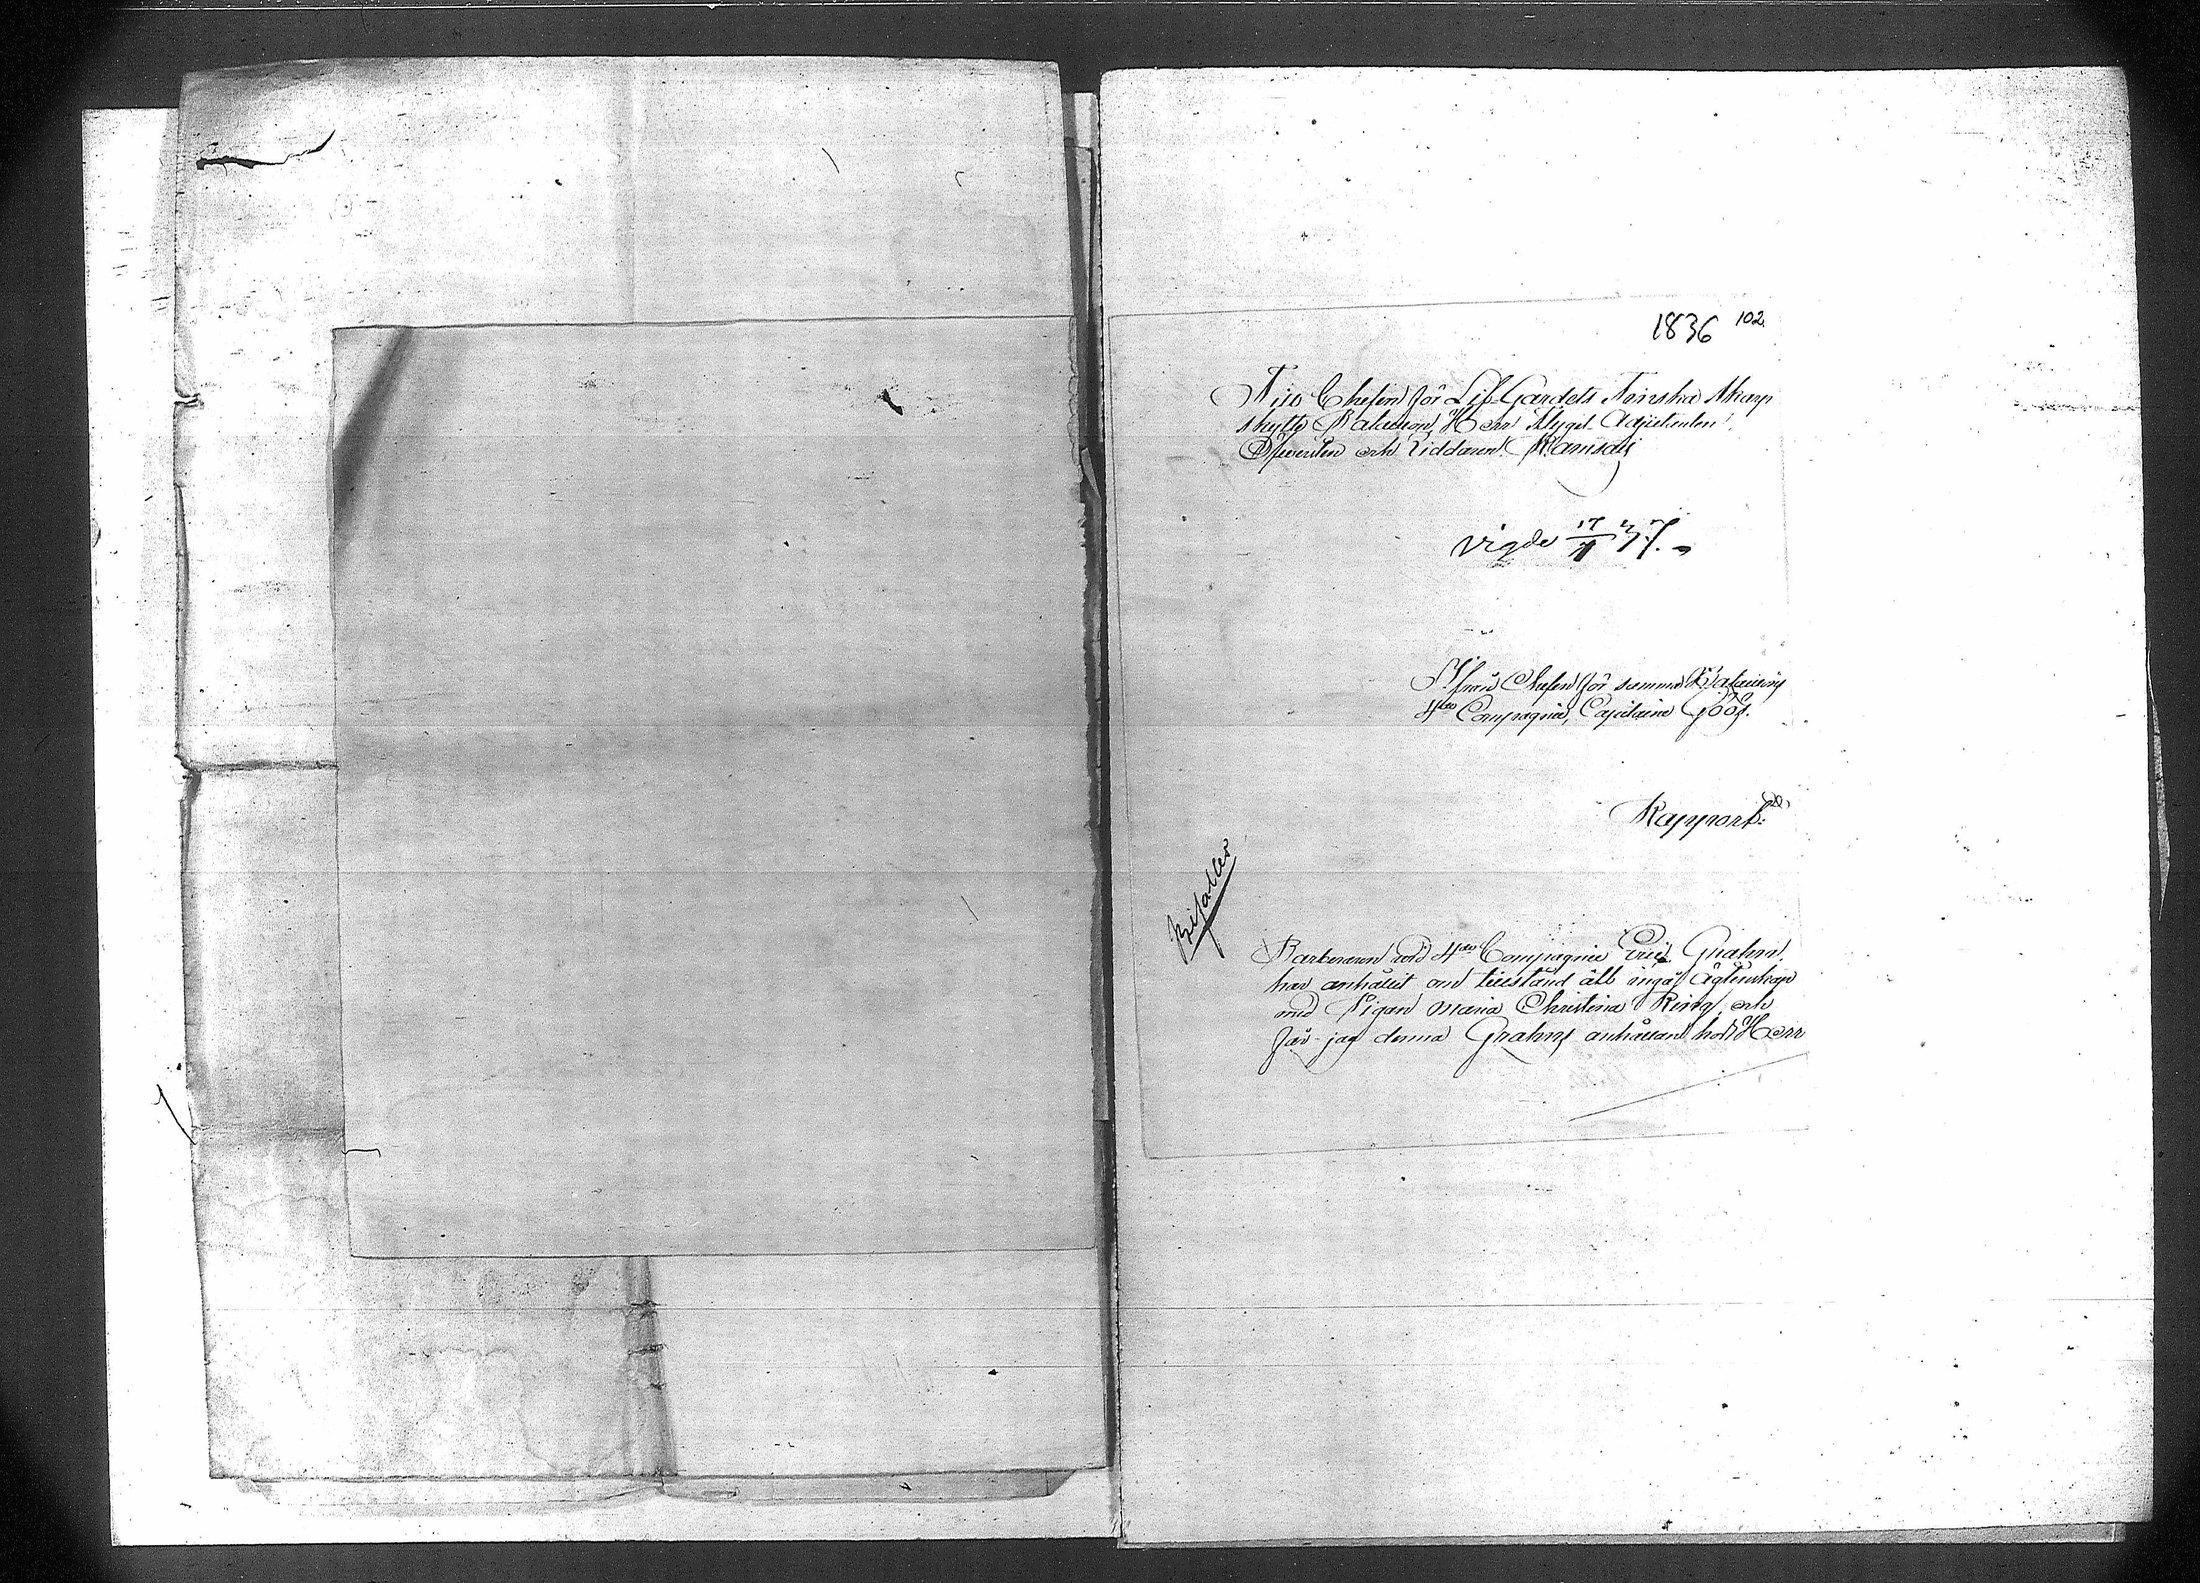 1836 102.
Till Chefen för Lif-Gardets Finska Skarp
skytte Bataillon, Herr Flygel Adjutanten,
Öfversten och Riddaren Ramsaÿ
vigde 17/1 37.
Ifrån Chefen för samma Bataillons
4de Compagnie, Capitaine Göös.
Rapport:
Bifalles
Barberaren vid 4de Compagnie Eric Grahn,
har anhållit om tillstånd att ingå Ägtenskap
med Pigan Maria Christina Ring, och
får jag denna Grahns anhållan hos Herr